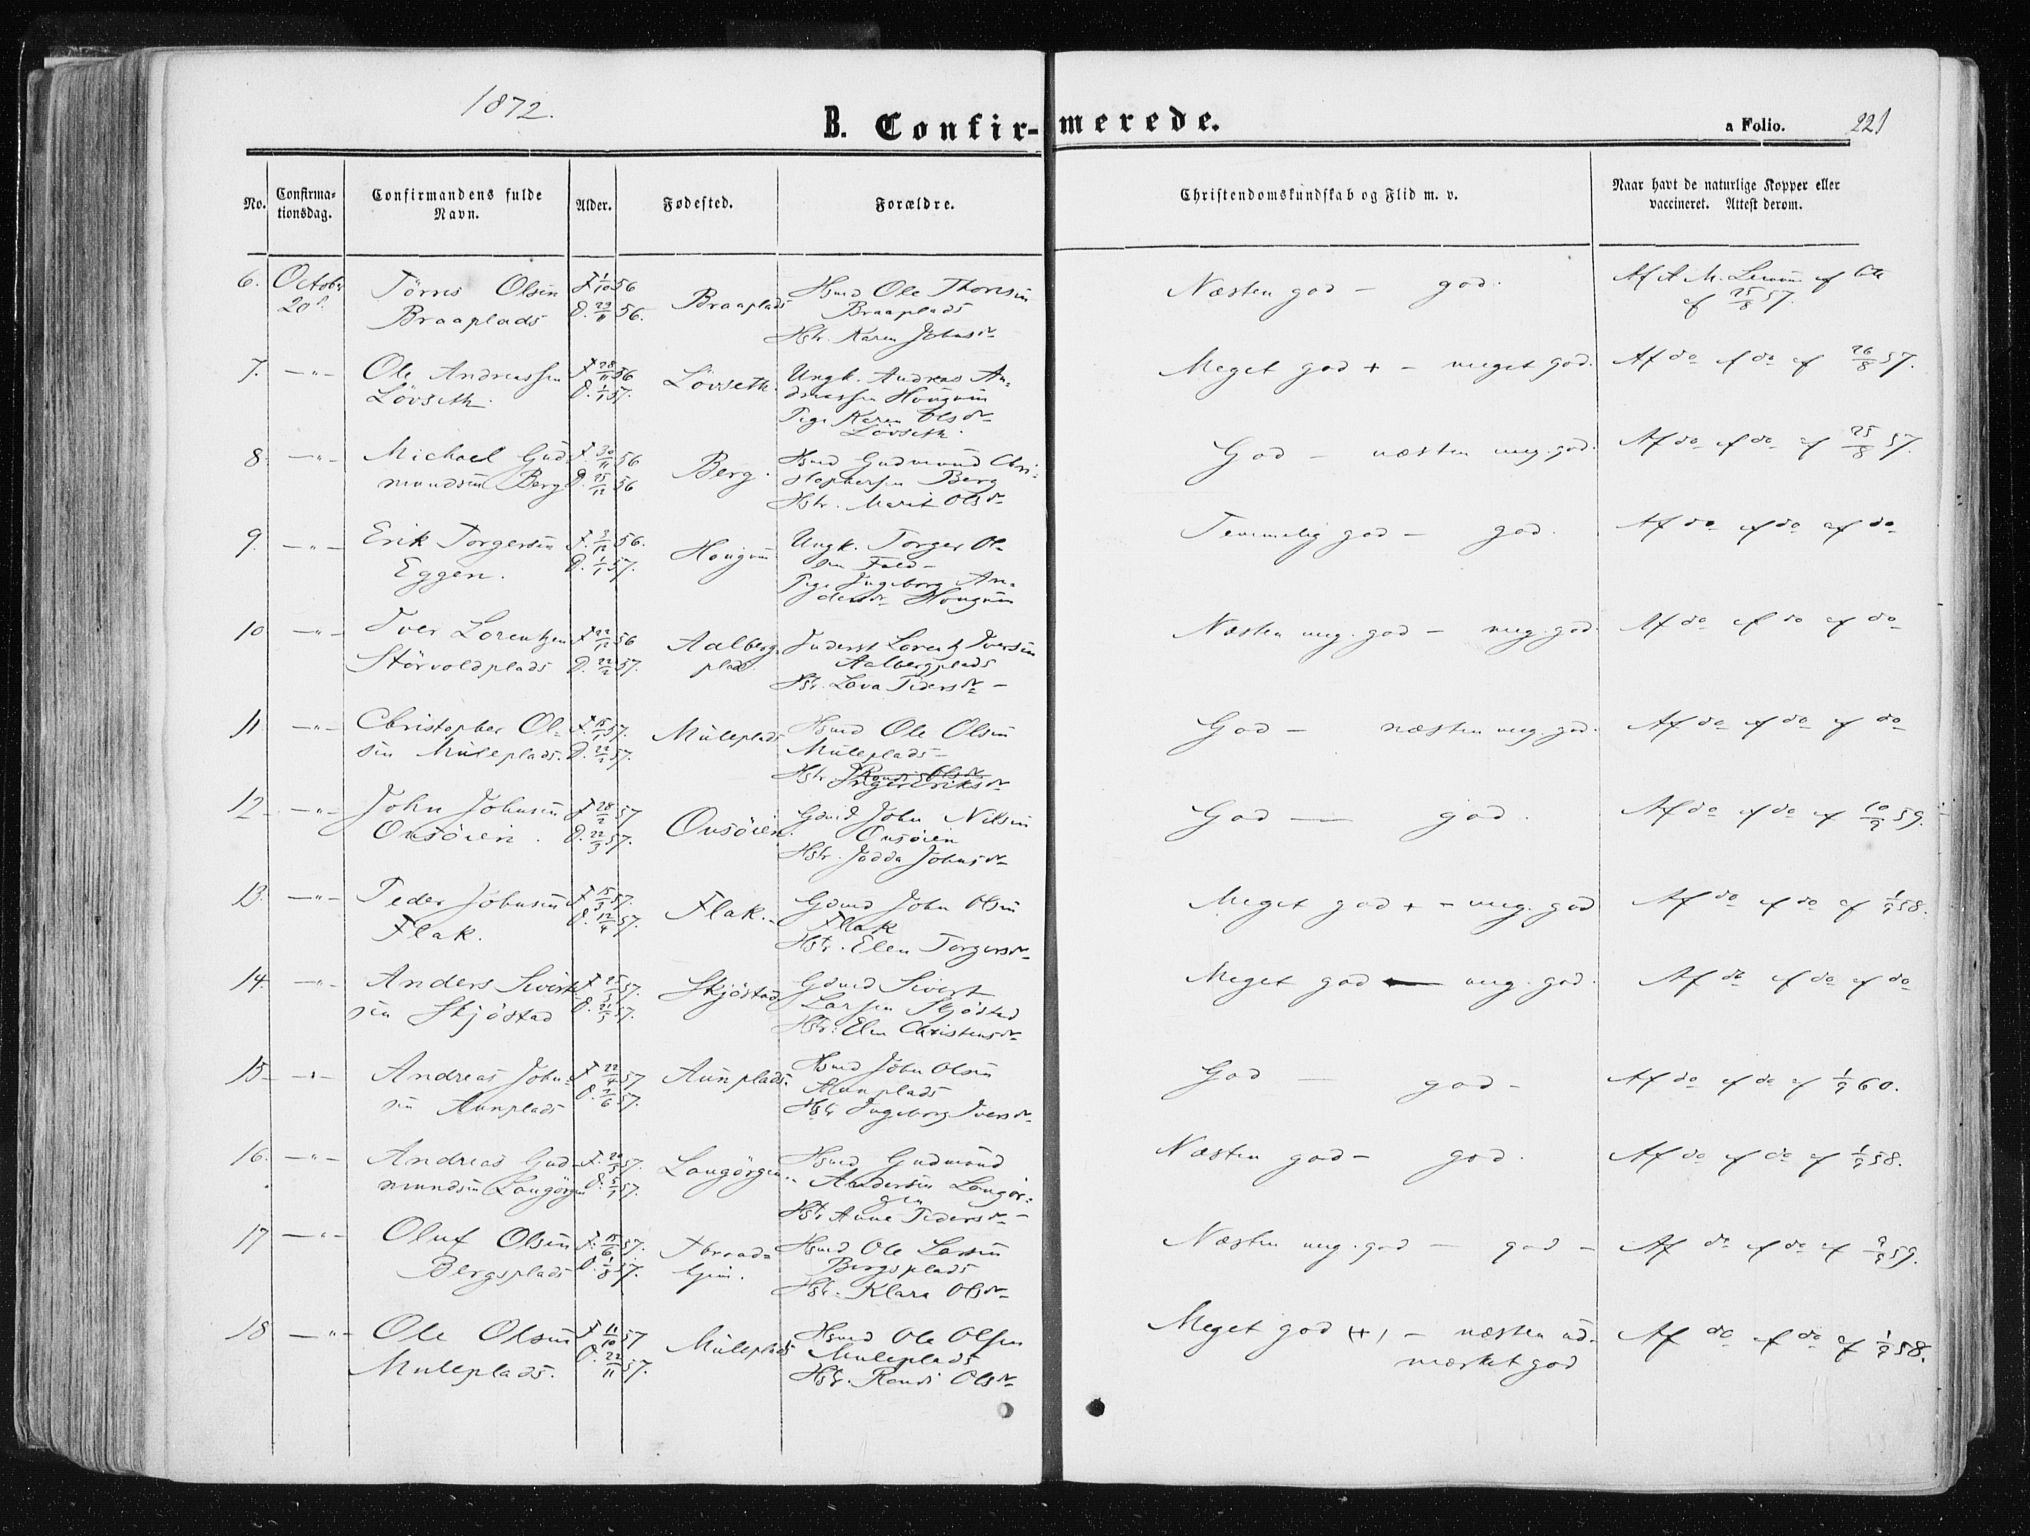 1872.
B. Confirmerede.
a Folio. 221
No. Confirmationsdag. Confirmandens fulde Navn. Alder. Fødested. Forældre. Christendomskundskab og Flid m. v. Naar havt de naturlige Kopper eller vaccineret. Attest derom.
6. Octobr Törris Olsen F 1/10 56 Braaplads Hsmd Ole Thoresen Næsten god - god. Af A. M.
20de Braaplads D. 23/11 56. Braaplads af 25/8 57.
Hstr. Karen Johnsdr
7. —"— Ole Andreassen F 28/11 56 Lövseth. Ungk. Andreas An- Meget god + - meget god. Af do af do af 26/8 57.
Lövseth. D. 1/1 57. dreassen Hougum
Pige Karen Olsdr
Lövseth.
8. —"— Michael Gud- F 30/11 56 Berg. Hsmd Gudmund Chri- God - næsten meg. god. Af do af do af 25/8 57.
mundsen Berg D. 25/12 56 stophersen Berg
Hstr. Marit Olsdr
9. —"— Erik Torgersen F. 3/12 56. Hougum Ungk. Torger Ol- Temmelig god - god. Af do af do af do
Eggen. D. 1/1 57. sen
Pige Ingeborg An-
dersdr Hougum
10 —"— Iver Lorentzen F 22/12 56 Aalbergs- Inderst Lorentz Iversen Næsten meg. god - meg. god Af do af do af do
Störvoldplads D. 22/2 57. plads Aalbergplads
Hstr. Lava Pedersdr -
11 —"— Christopher Ol- F. 15/1 57. Muleplads Hsmd Ole Olsen God - næsten meg. god. Af do af do af do
sen Muleplads. D. 22/2 57. Muleplads -
Hstr Randi Olsdr
Inger Eriksdr
12 —"— John Johnsen F 28/2 57 Onsöien Gmd John Nilsen God — god. Af do af do af 10/9 59.
Onsöien. D. 22/3 57. Onsöien
Hstr. Johnsdr
13. —"— Peder Johnsen F 15/3 57. Flak. Gmd John Olsen Meget god + - meg. god Af do af do af 1/9 58.
Flak. D. 12/4 57. Flak
Hstr. Elen Torgersdr
14. —"— Anders Sivert- F 25/3 57. Skjöstad Gmd Sivert Meget god — meg. god. Af do af do af do
sen Skjöstad D. 21/5 57. Larsen Skjöstad
Hstr. Elen Christensdr
15 —"— Andreas John- F 22/4 57 Aunplads. Hsmd John Olsen God — god - Af do af do af 1/9 60.
sen Aunplads D. 57. Aunplads
Hstr Ingeborg Iversdr
16. —"— Andreas Gud- F. 20/5 57. Langörgen Hsmd Gudmund Næsten god - god. Af do af do af 1/9 58.
mundsen Langörgen D. 57. Andersen Langör-
gen
Hstr Anne Pedersdr -
17 —"— Oluf Olsen F. 15/6 57. Hsmd Ole Larsen Næsten meg. god — god - Af do af do af 9/9 59.
Bergsplads D. 57. Bergsplads
Hstr. Klara Olsdr
18 —"— Ole Olsen F 11/10 57 Muleplads Hsmd Ole Olsen Meget god (+) - næsten ud- Af do af do af 1/9 58.
Muleplads. D. 22/11 57. Muleplads mærket god
Hstr. Randi Olsdr